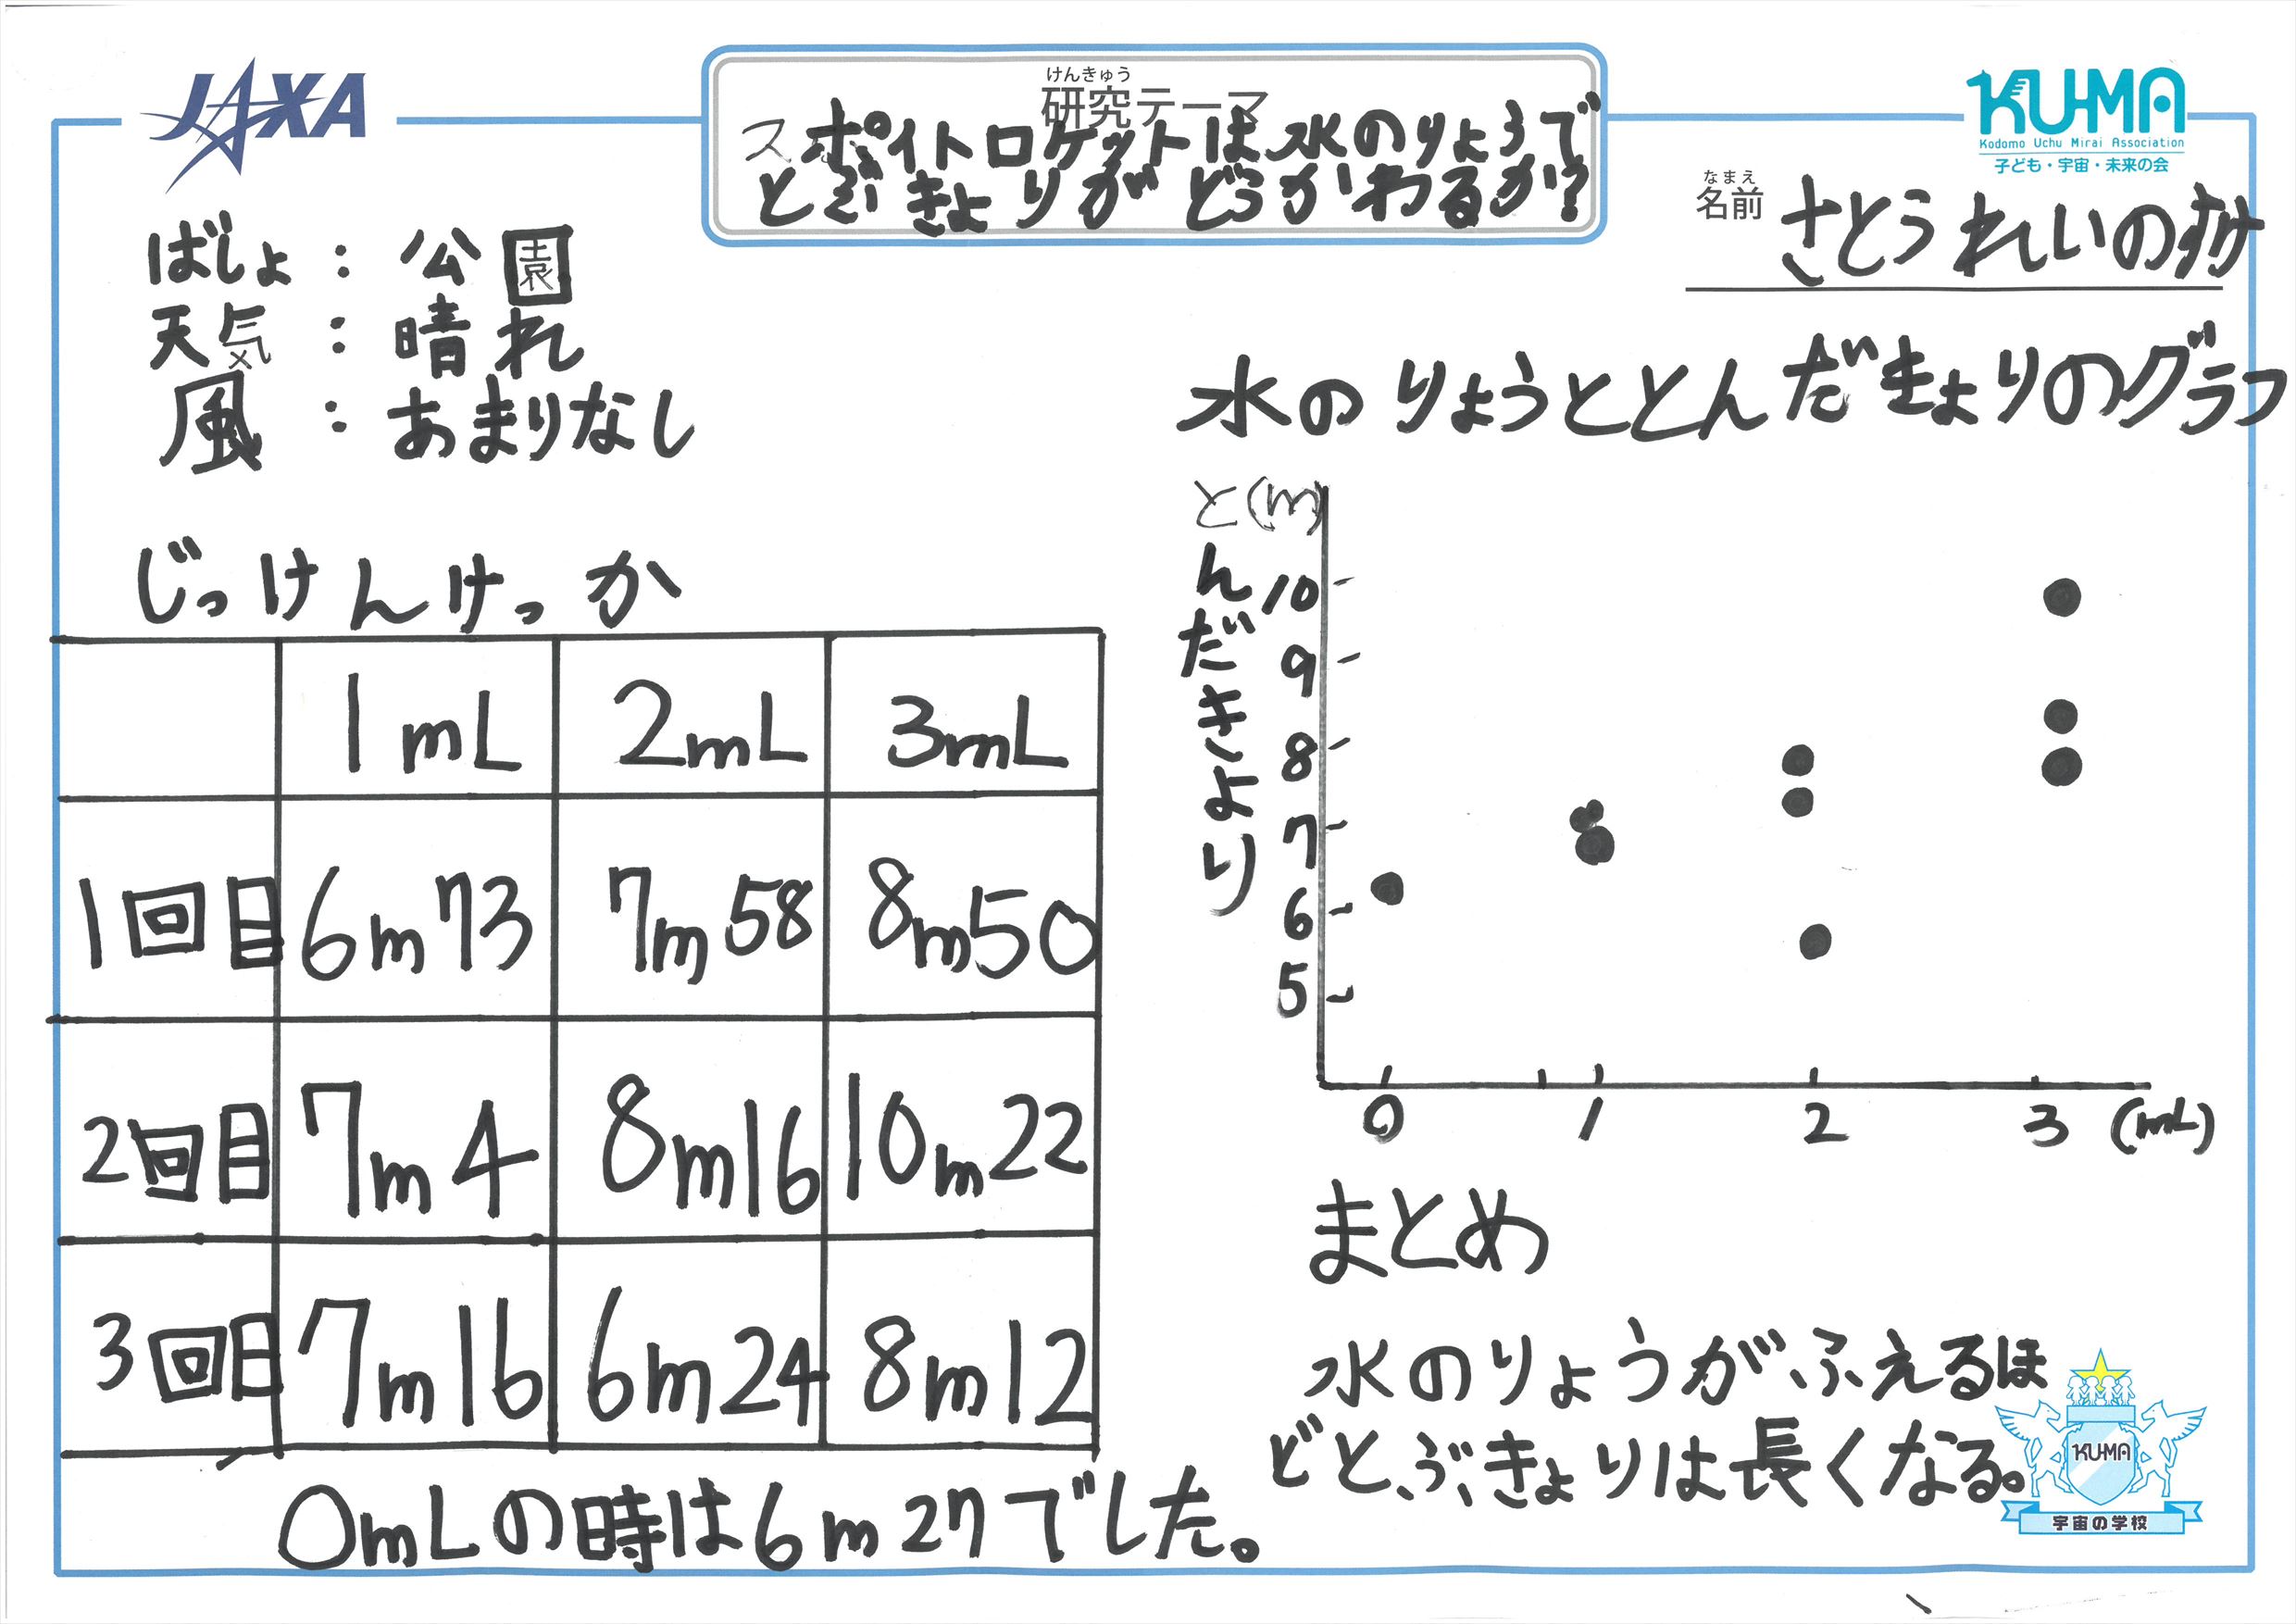 JAXA
けんきゅう
研究テーマ
スポイトロケットは水のりょうで
とぶきょりがどうかわるか?
KU-MA
Kodomo Uchu Mirai Association
子ども・宇宙・未来の会
なまえ
名前 さとうれいの
ばしょ:公園
天気:晴れ
風:あまりなし
じっけんけっか
1mL 2mL 3mL
1回目 6m73 7m58 8m50
2回目 7m4 8m16 10m22
3回目 7m16 6m24 8m12
0mLの時は6m27でした。
水のりょうととんだきょりのグラフ
とんだきより
(m)
10
9
8
7
6
5
0 1 2 3 (mL)
まとめ
水のりょうがふえるほ
どとぶきょりは長くなる。
KU-MA
宇宙の学校